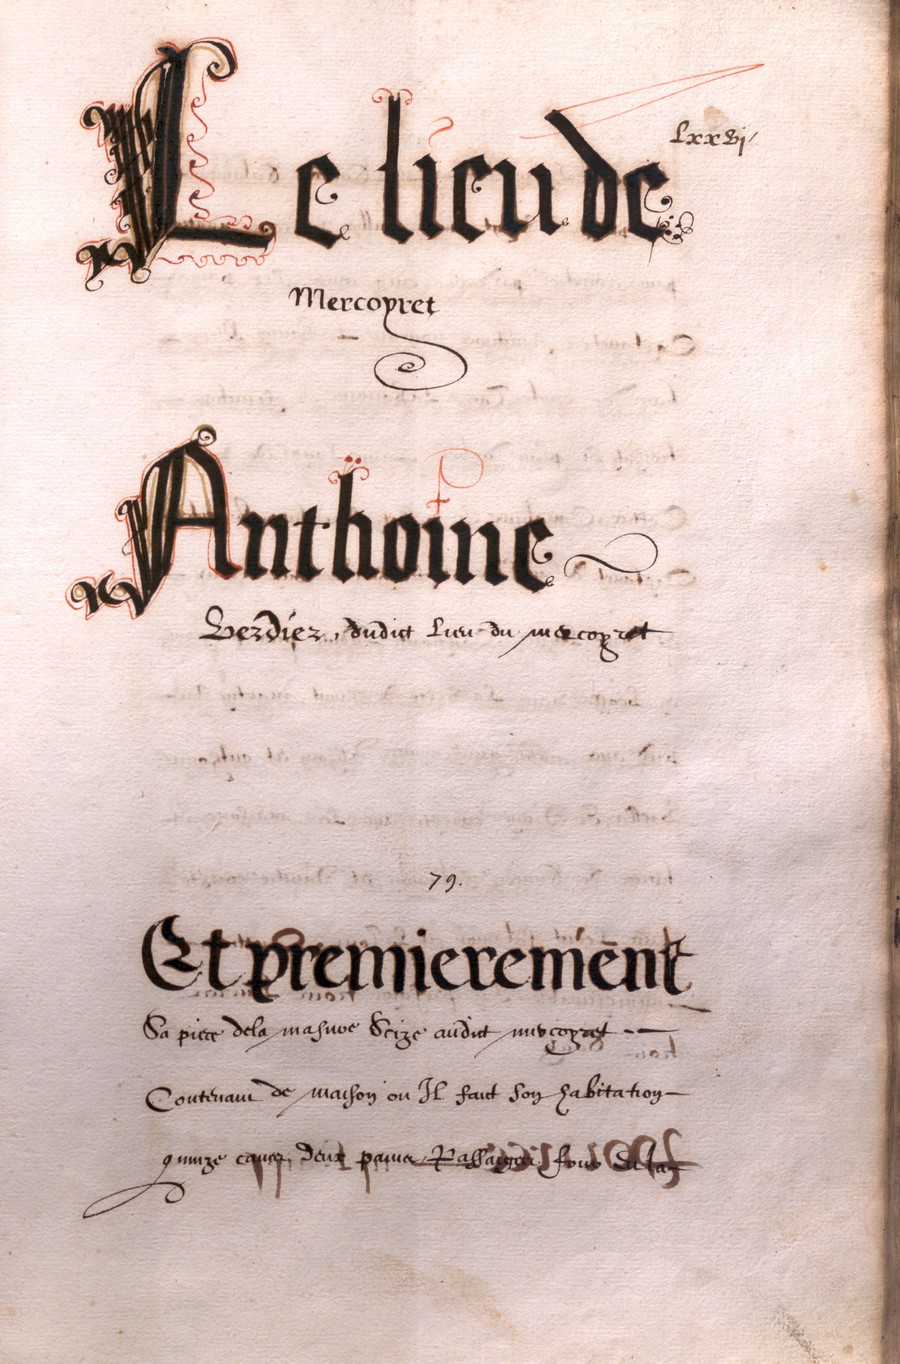 Lxxvi
Le lieu de
Mercoyret
Anthoine
Verdier, dudict lieu du mercoyret
79.
Et premierement
Sa piece dela masure Seize audict mercoyret
Contenant de maison ou Il faict son habitation
quinze cannes deux pams